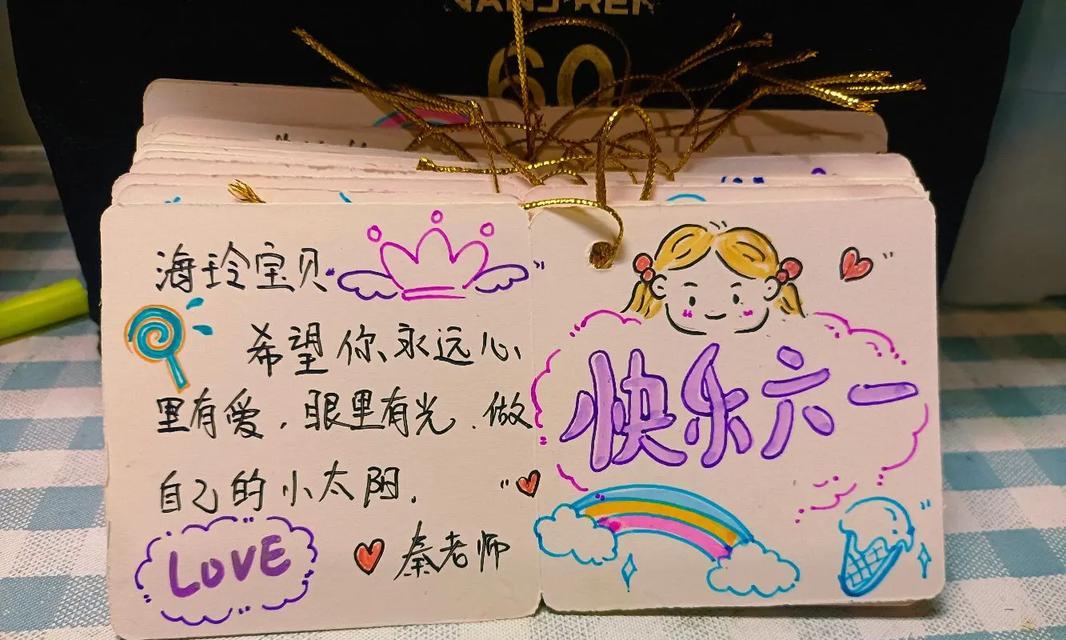 NANJREN
60
海玲宝贝
希望你永远心
里有爱，眼里有光，做
自己的小太阳.
LOVE
秦老师
快乐六一